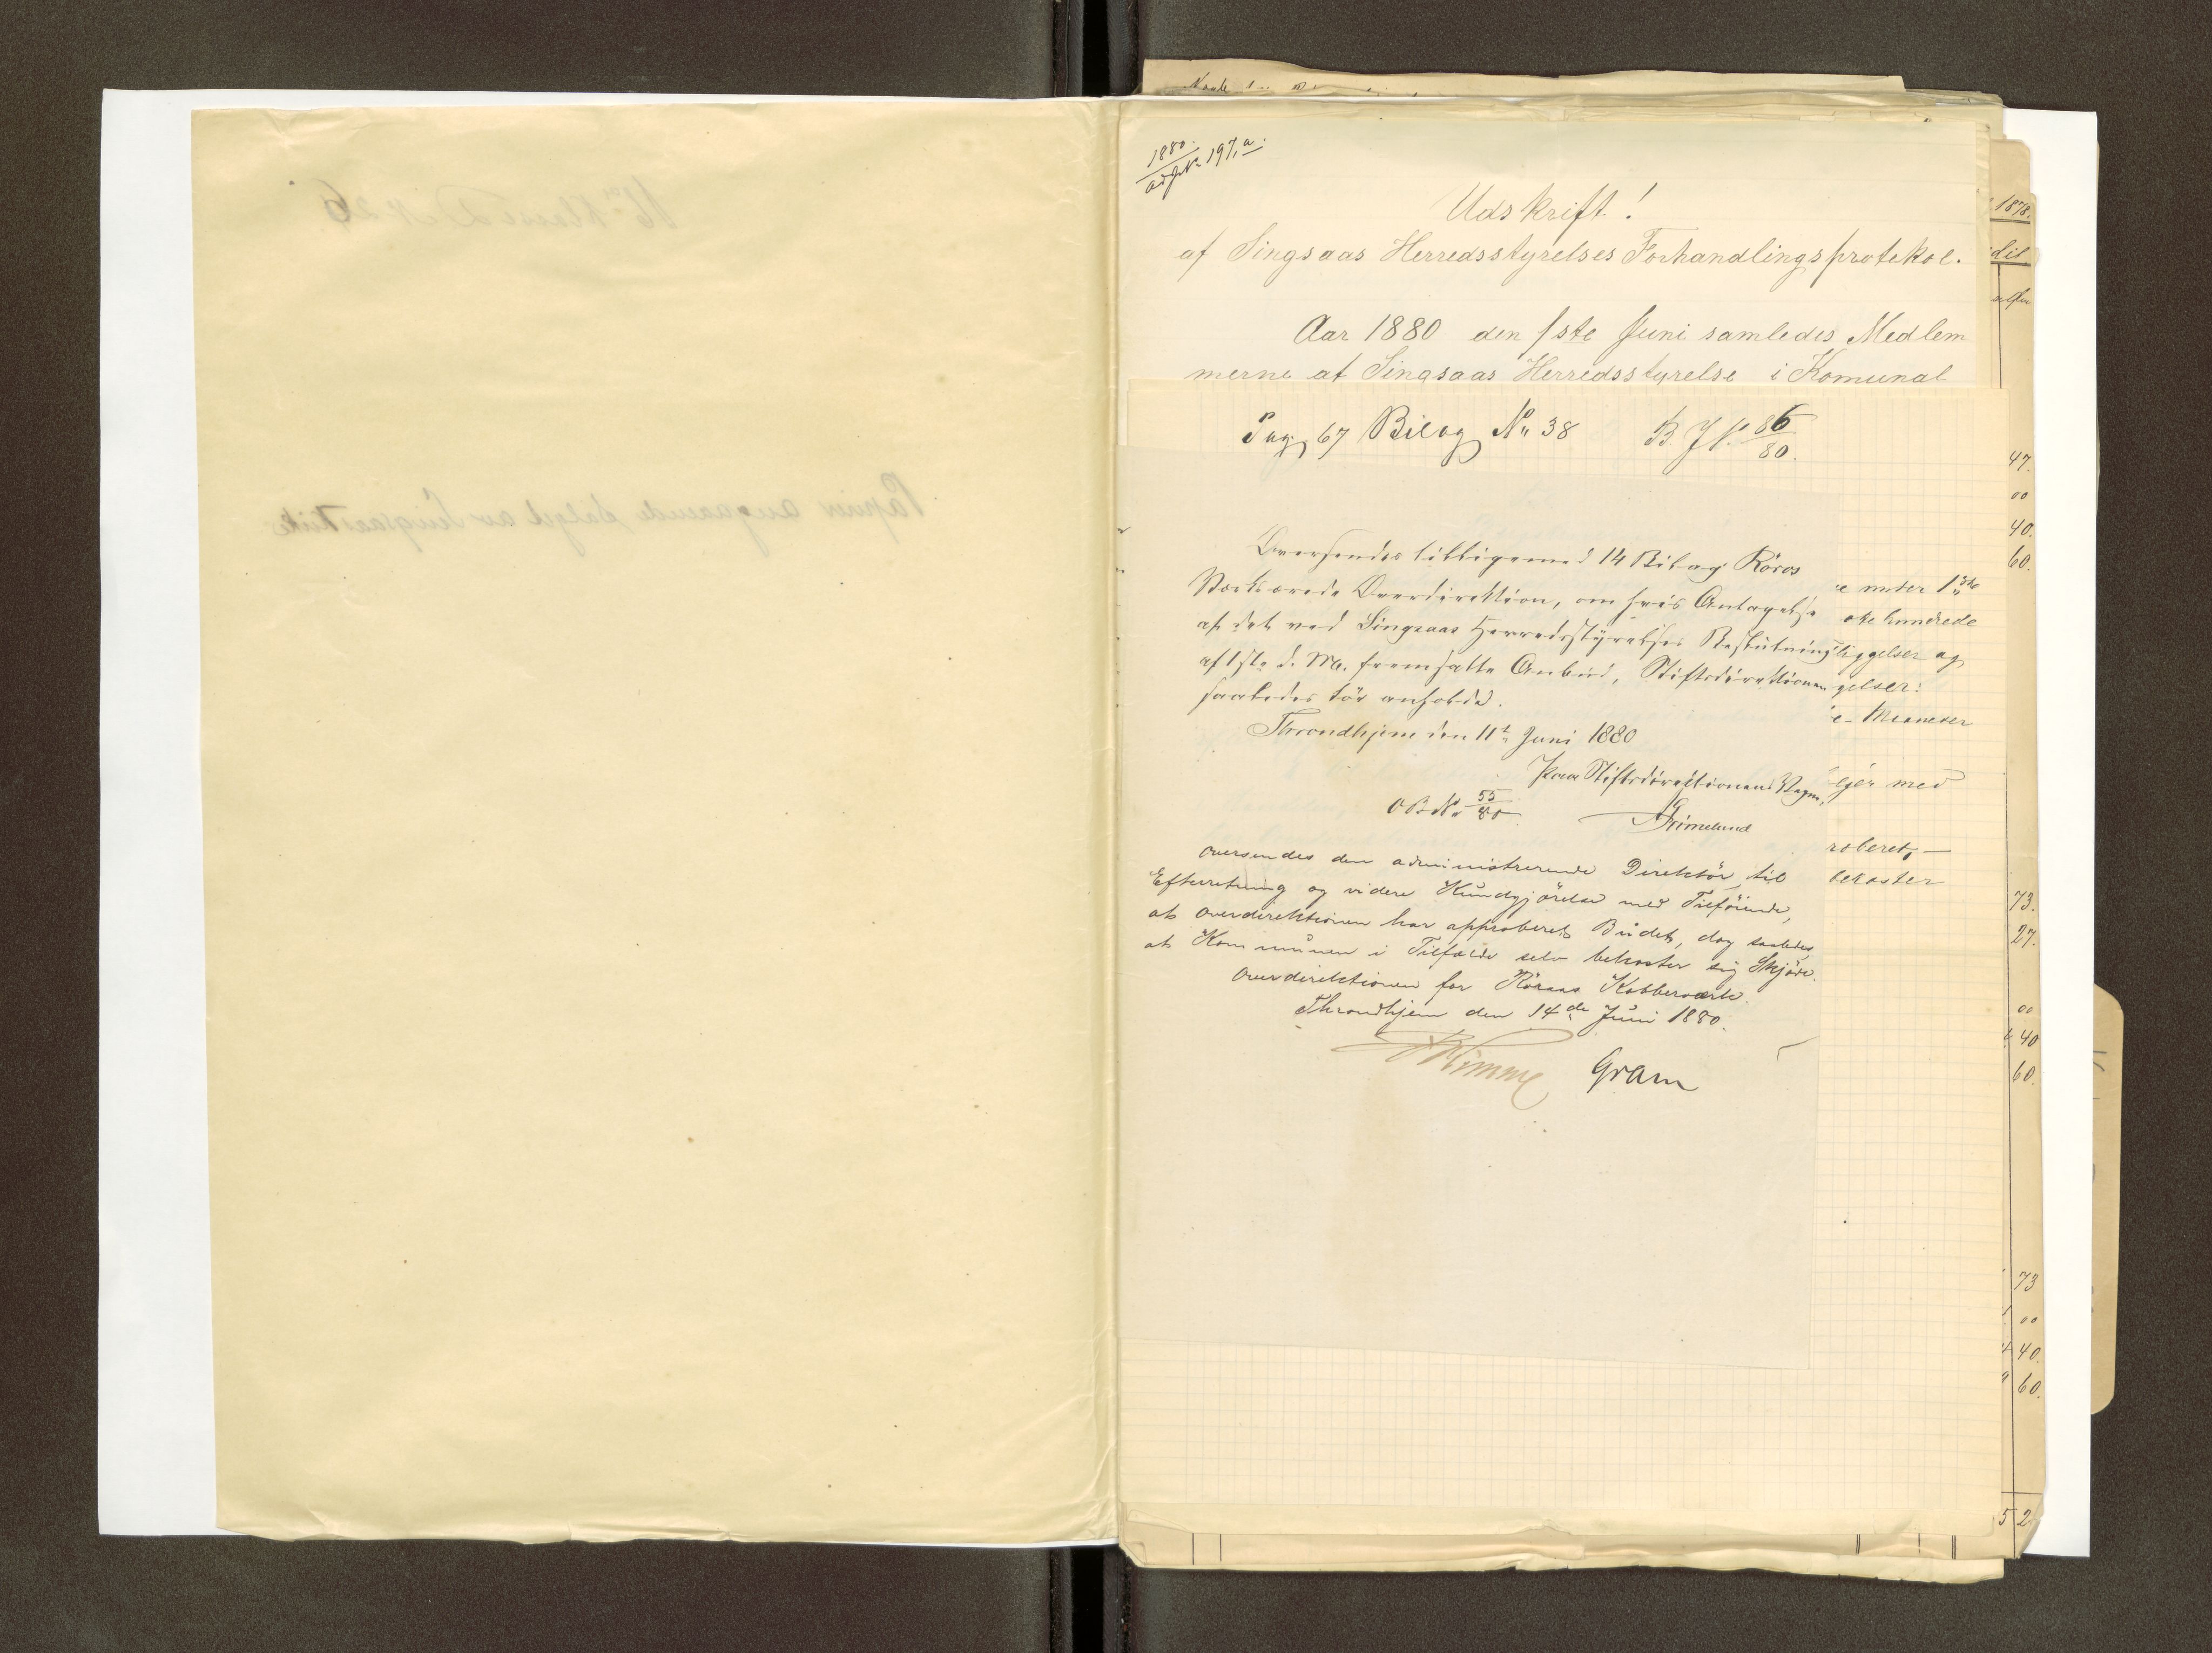 1880.
adjk. 197, a.
Udskrift!
af Singsaas Herredsstyrelses Forhandlingsprotokol.
Aar 1880 den 1ste Juni samledes Medlem
merne af Singsaas Herredsstyrelse i Komunal
Pag 67 Bilag No 38 B. J. 86/80.
Oversendes tilligemed 14 Bilag Röros
Værks Overdirektion, om hvis Antagelse
af det ved Singsaas Herredsstyrelses Beslutning
af 1ste d. M. fremsatte Anbud, Stiftsdirektionen
saaledes tör anholde.
Throndhjem den 11te Juni 1880
Paa Stiftsdirektionens Vegne,
Grimelund
O B No 55/80
Oversendes den administrerende Direktör til
Efterretning og videre Kundgjörelse med Tilföiende,
at Overdirektionen har approberet Budet, dog saaledes
at Kommunen i Tilfælde selv bekoster sig Skjöde.
Overdirektionen for Röraas Kobberværk.
Throndhjem den 14de Juni 1880.
Gram
e under 1ste
otte hundrede
liggelser og
gelser:
eier med
roberet, —
bekoster
1878.
47.
00
40.
60.
73.
27.
00
40
60.
73
00
40.
60.
5 2
Papirer angaaende Salget av Singsaas Kirke